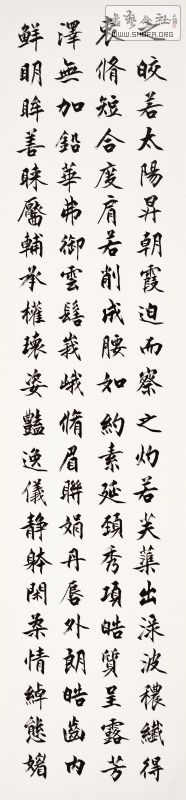 之皎若太陽昇朝霞迫而察之灼若芙蕖出淥波穠纖得
衷脩短合度肩若削成腰如約素延頸秀項皓質呈露芳
澤無加鉛華弗御雲髻峩峨脩眉聯娟丹唇外朗皓齒內
鮮明眸善睞靨輔承權瓌姿豔逸儀静躰閑柔情綽態媚